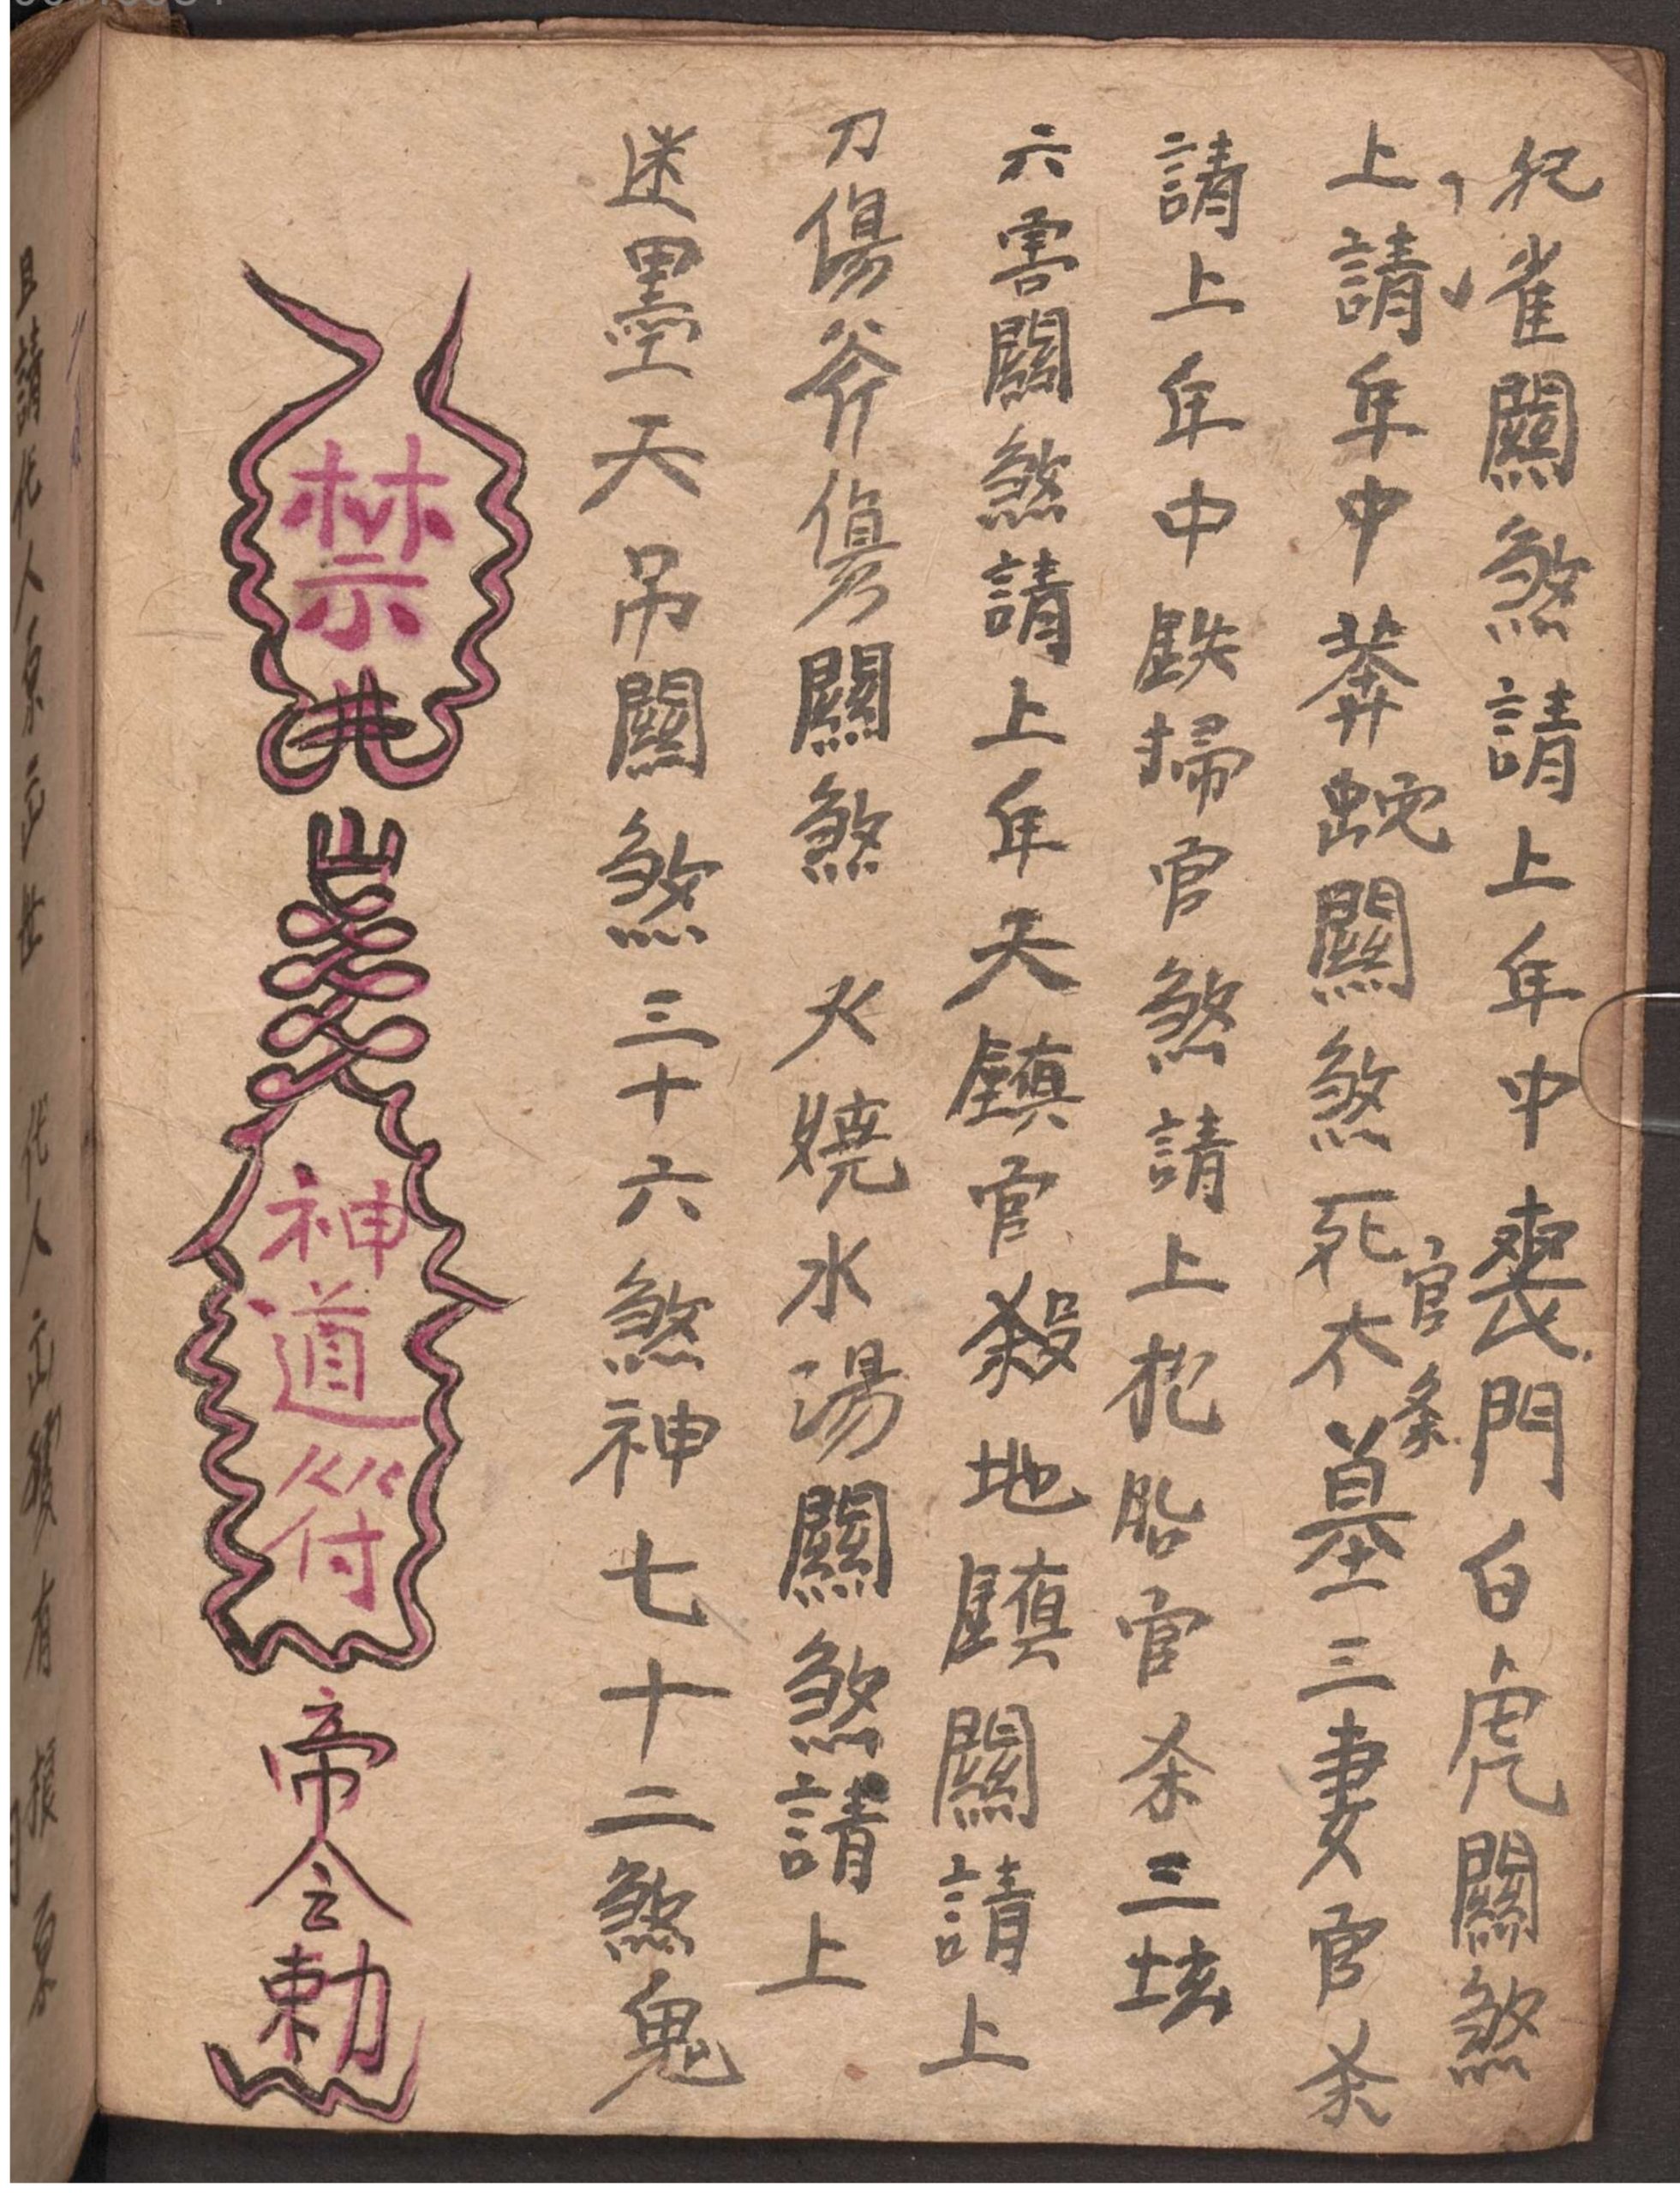 雀關煞請上年中喪門白虎關煞
上請年中莽蛇關煞死木墓三妻官杀
官条
請上年中鉄掃官煞請上批胎官杀三坛
六害關煞請上年天鎮官殺地鎮關請上
刀傷斧傷關煞 火燒水湯關煞請上
送墨天吊關煞三十六煞神七十二煞鬼
禁
神道符
帝令勅